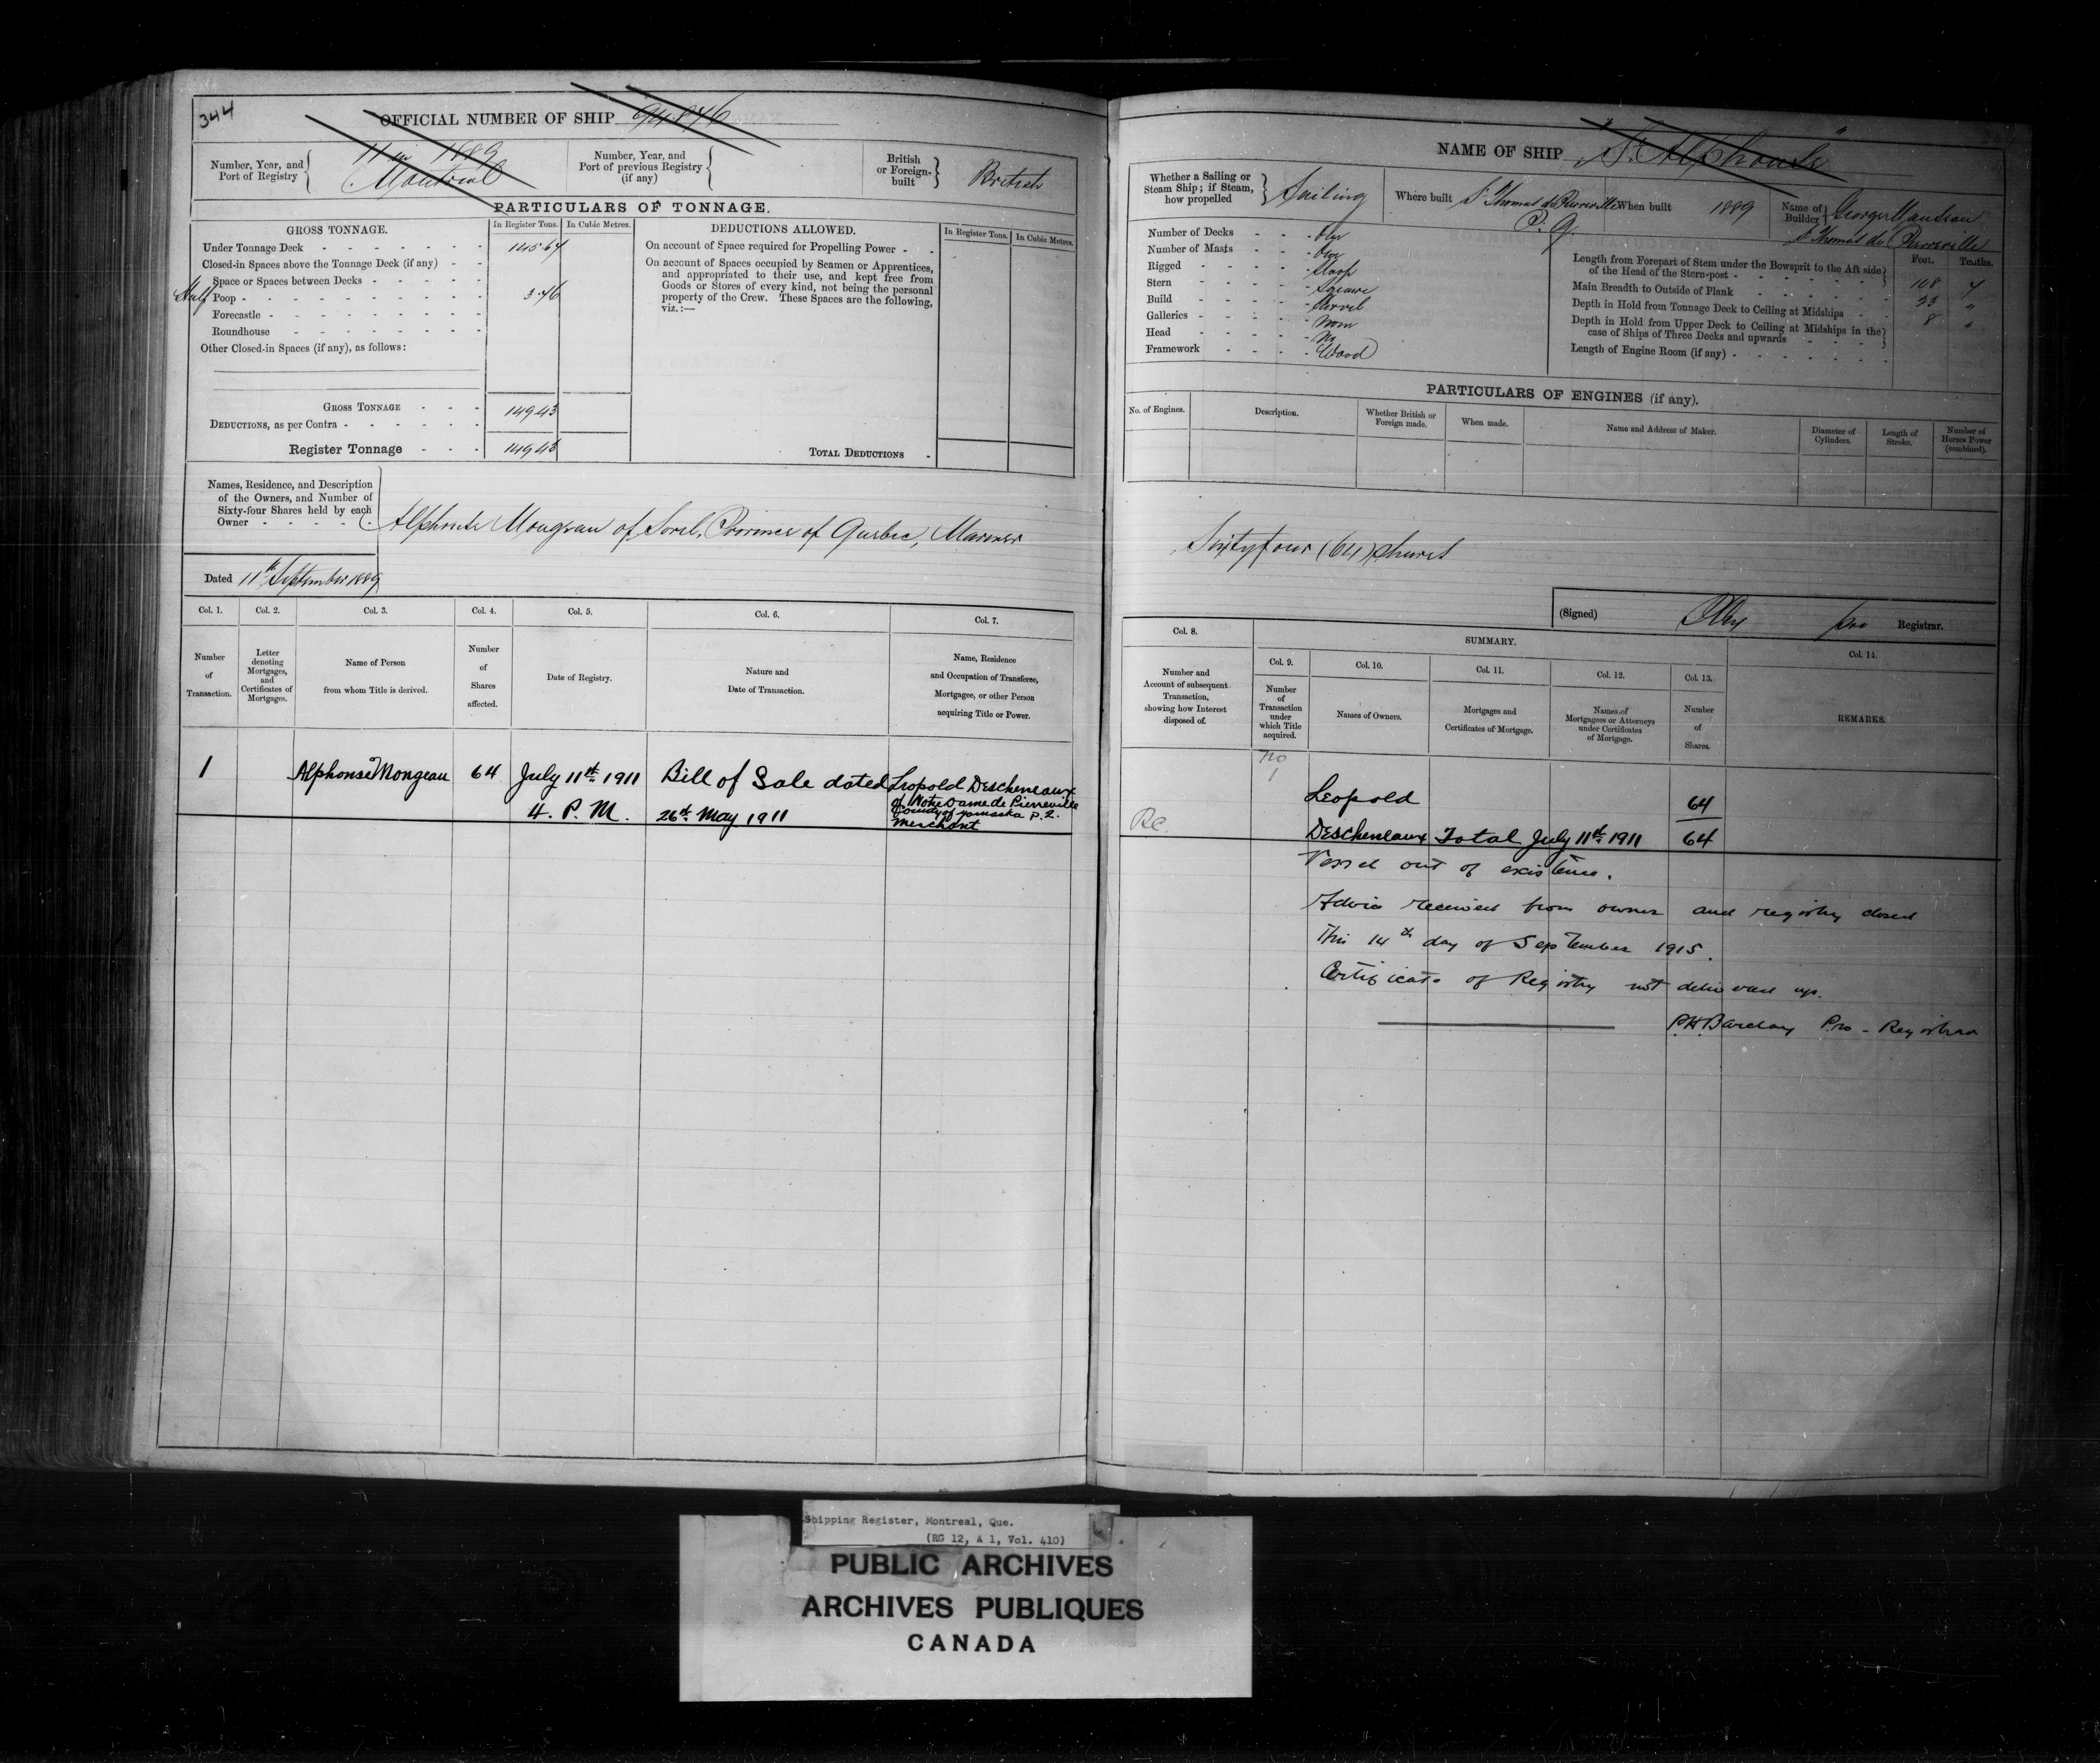 344
OFFICIAL NUMBER OF SHIP 94.876
Number, Year, and Port of Registry 11 in 1889 Montreal
Number, Year, and Port of previous Registry (if any)
British or Foreign-built British
PARTICULARS OF TONNAGE.
GROSS TONNAGE. In Register Tons. In Cubic Metres.
Under Tonnage Deck 145.67
Closed-in Spaces above the Tonnage Deck (if any)
Space or Spaces between Decks
Half Poop 3.76
Forecastle
Roundhouse
Other Closed-in Spaces (if any), as follows:
GROSS TONNAGE 149.43
DEDUCTIONS, as per Contra
Register Tonnage 149.43
DEDUCTIONS ALLOWED. In Register Tons. In Cubic Metres.
On account of Space required for Propelling Power
On account of Spaces occupied by Seamen or Apprentices,
and appropriated to their use, and kept free from
Goods or Stores of every kind, not being the personal
property of the Crew. These Spaces are the following,
viz.:—
TOTAL DEDUCTIONS
Names, Residence, and Description
of the Owners, and Number of
Sixty-four Shares held by each
Owner
Alphonse Mongeau of Sorel, Province of Quebec, Mariner
Dated 11th September 1889
Col. 1. Col. 2. Col. 3. Col. 4. Col. 5. Col. 6. Col. 7.
Number of Transaction.
Letter denoting Mortgages, and Certificates of Mortgages.
Name of Person from whom Title is derived.
Number of Shares affected.
Date of Registry.
Nature and Date of Transaction.
Name, Residence and Occupation of Transferee, Mortgagee, or other Person acquiring Title or Power.
1 Alphonse Mongeau 64 July 11th 1911 Bill of Sale dated Leopold Descheneaux
4. P. M. 26th May 1911 of Notre Dame de Pierreville
County of Yamaska P.Q.
merchant
NAME OF SHIP "St. Alphonse"
Whether a Sailing or Steam Ship; if Steam, how propelled Sailing
Where built St Thomas de Pierreville P.Q.
When built 1889
Name of Builder George Manseau
St Thomas de Pierreville
Number of Decks One
Number of Masts One
Rigged Sloop
Stern Square
Build Carvel
Galleries None
Head No
Framework Wood
Feet. Tenths.
Length from Forepart of Stem under the Bowsprit to the Aft side of the Head of the Stern-post 108 7
Main Breadth to Outside of Plank 23 "
Depth in Hold from Tonnage Deck to Ceiling at Midships 8 "
Depth in Hold from Upper Deck to Ceiling at Midships in the case of Ships of Three Decks and upwards
Length of Engine Room (if any)
PARTICULARS OF ENGINES (if any).
No. of Engines. Description. Whether British or Foreign made. When made. Name and Address of Maker. Diameter of Cylinders. Length of Stroke. Number of Horses Power (combined).
Sixty four (64) shares
(Signed) pro Registrar.
Col. 8. SUMMARY. Col. 14.
Col. 9. Col. 10. Col. 11. Col. 12. Col. 13.
Number and Account of subsequent Transaction, showing how Interest disposed of.
Number of Transaction under which Title acquired.
Names of Owners.
Mortgages and Certificates of Mortgage.
Names of Mortgagees or Attorneys under Certificates of Mortgage.
Number of Shares.
REMARKS.
No
1
Leopold 64
Descheneaux Total July 11th 1911 64
Vessel out of existence.
Advice received from owner and registry closed
This 14th day of September 1915.
Certificate of Registry not delivered up.
P.H. Barclay Pro-Registrar
Shipping Register, Montreal, Que.
(RG 12, A 1, Vol. 410)
PUBLIC ARCHIVES
ARCHIVES PUBLIQUES
CANADA